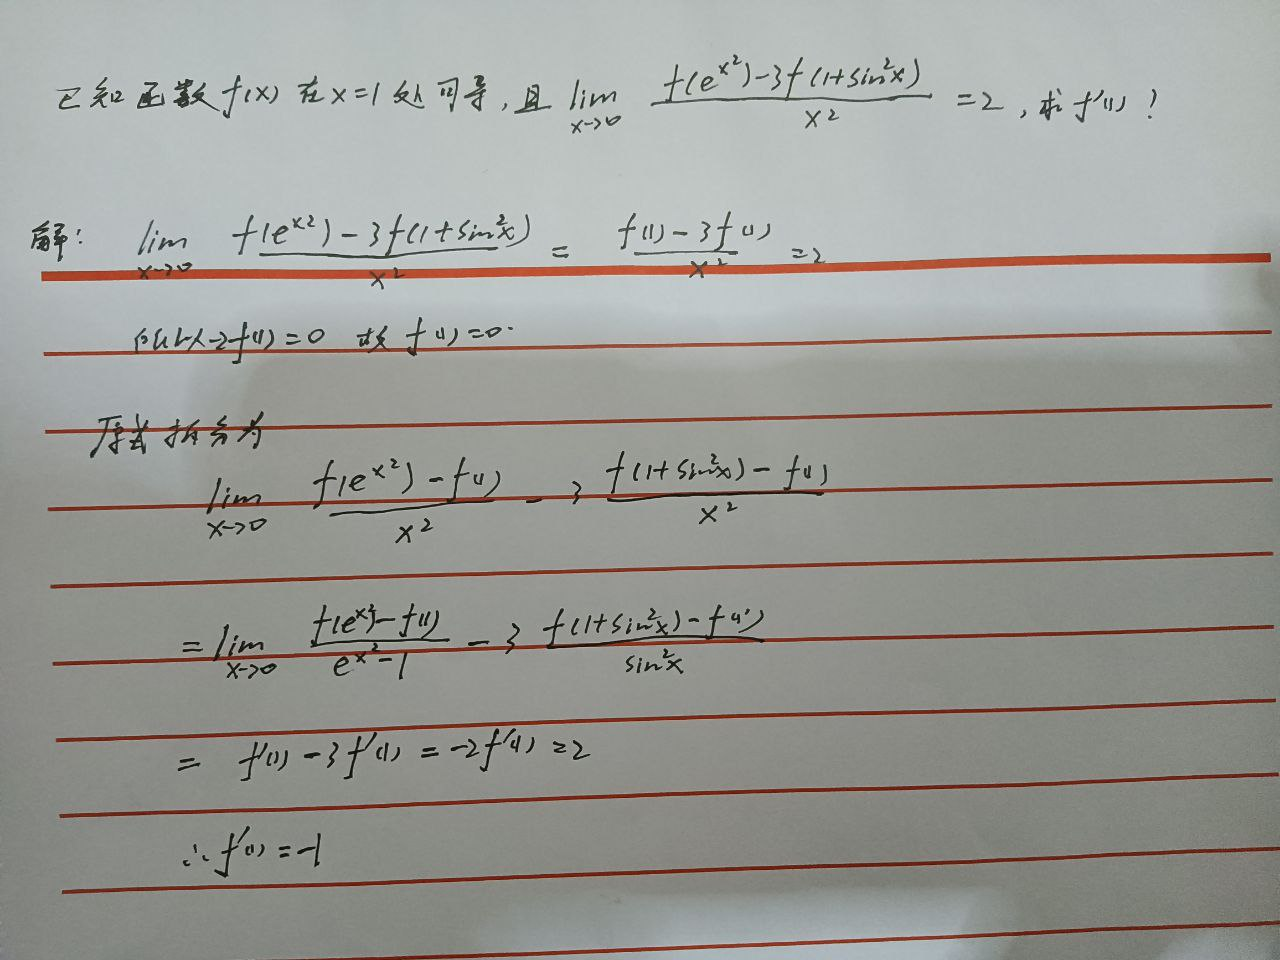 已知函数f(x)在x=1处可导,且 lim x→0 (f(e^{x²})-3f(1+sin²x))/x² =2,求f'(1)?
解: lim x→0 (f(e^{x²})-3f(1+sin²x))/x² = (f(1)-3f(1))/x² =2
所以-2f(1)=0 故f(1)=0.
原式拆分为
lim x→0 (f(e^{x²})-f(1))/x² - 3 (f(1+sin²x)-f(1))/x²
= lim x→0 (f(e^{x²})-f(1))/(e^{x²}-1) - 3 (f(1+sin²x)-f(1))/sin²x
= f'(1)-3f'(1) = -2f'(1) =2
∴ f'(1) =-1